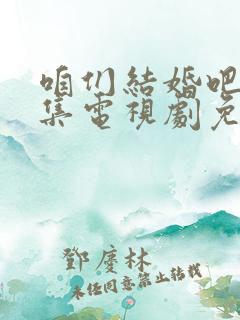 咱们結婚吧
集電視劇免
鄧慶林
未经同意禁止转载